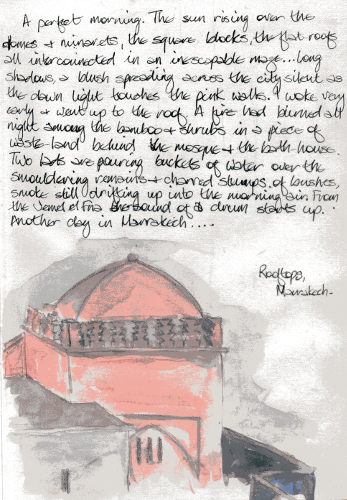 A perfect morning. The sun rising over the
domes + minarets, the square blocks, the flat roofs
all interconnected in an inescapable maze... long
shadows, a blush spreading across the city silent as
the dawn light touches the pink walls. I woke very
early + went up to the roof. A fire had burned all
night among the bamboo + shrubs in a piece of
waste land behind the mosque + the bath house.
Two lads are pouring buckets of water over the
smouldering remains + charred stumps of bushes,
smoke still drifting up into the morning air. From
the Jemel el Fna the sound of a drum starts up.
Another day in Marrakech....
Rooftops,
Marrakech.